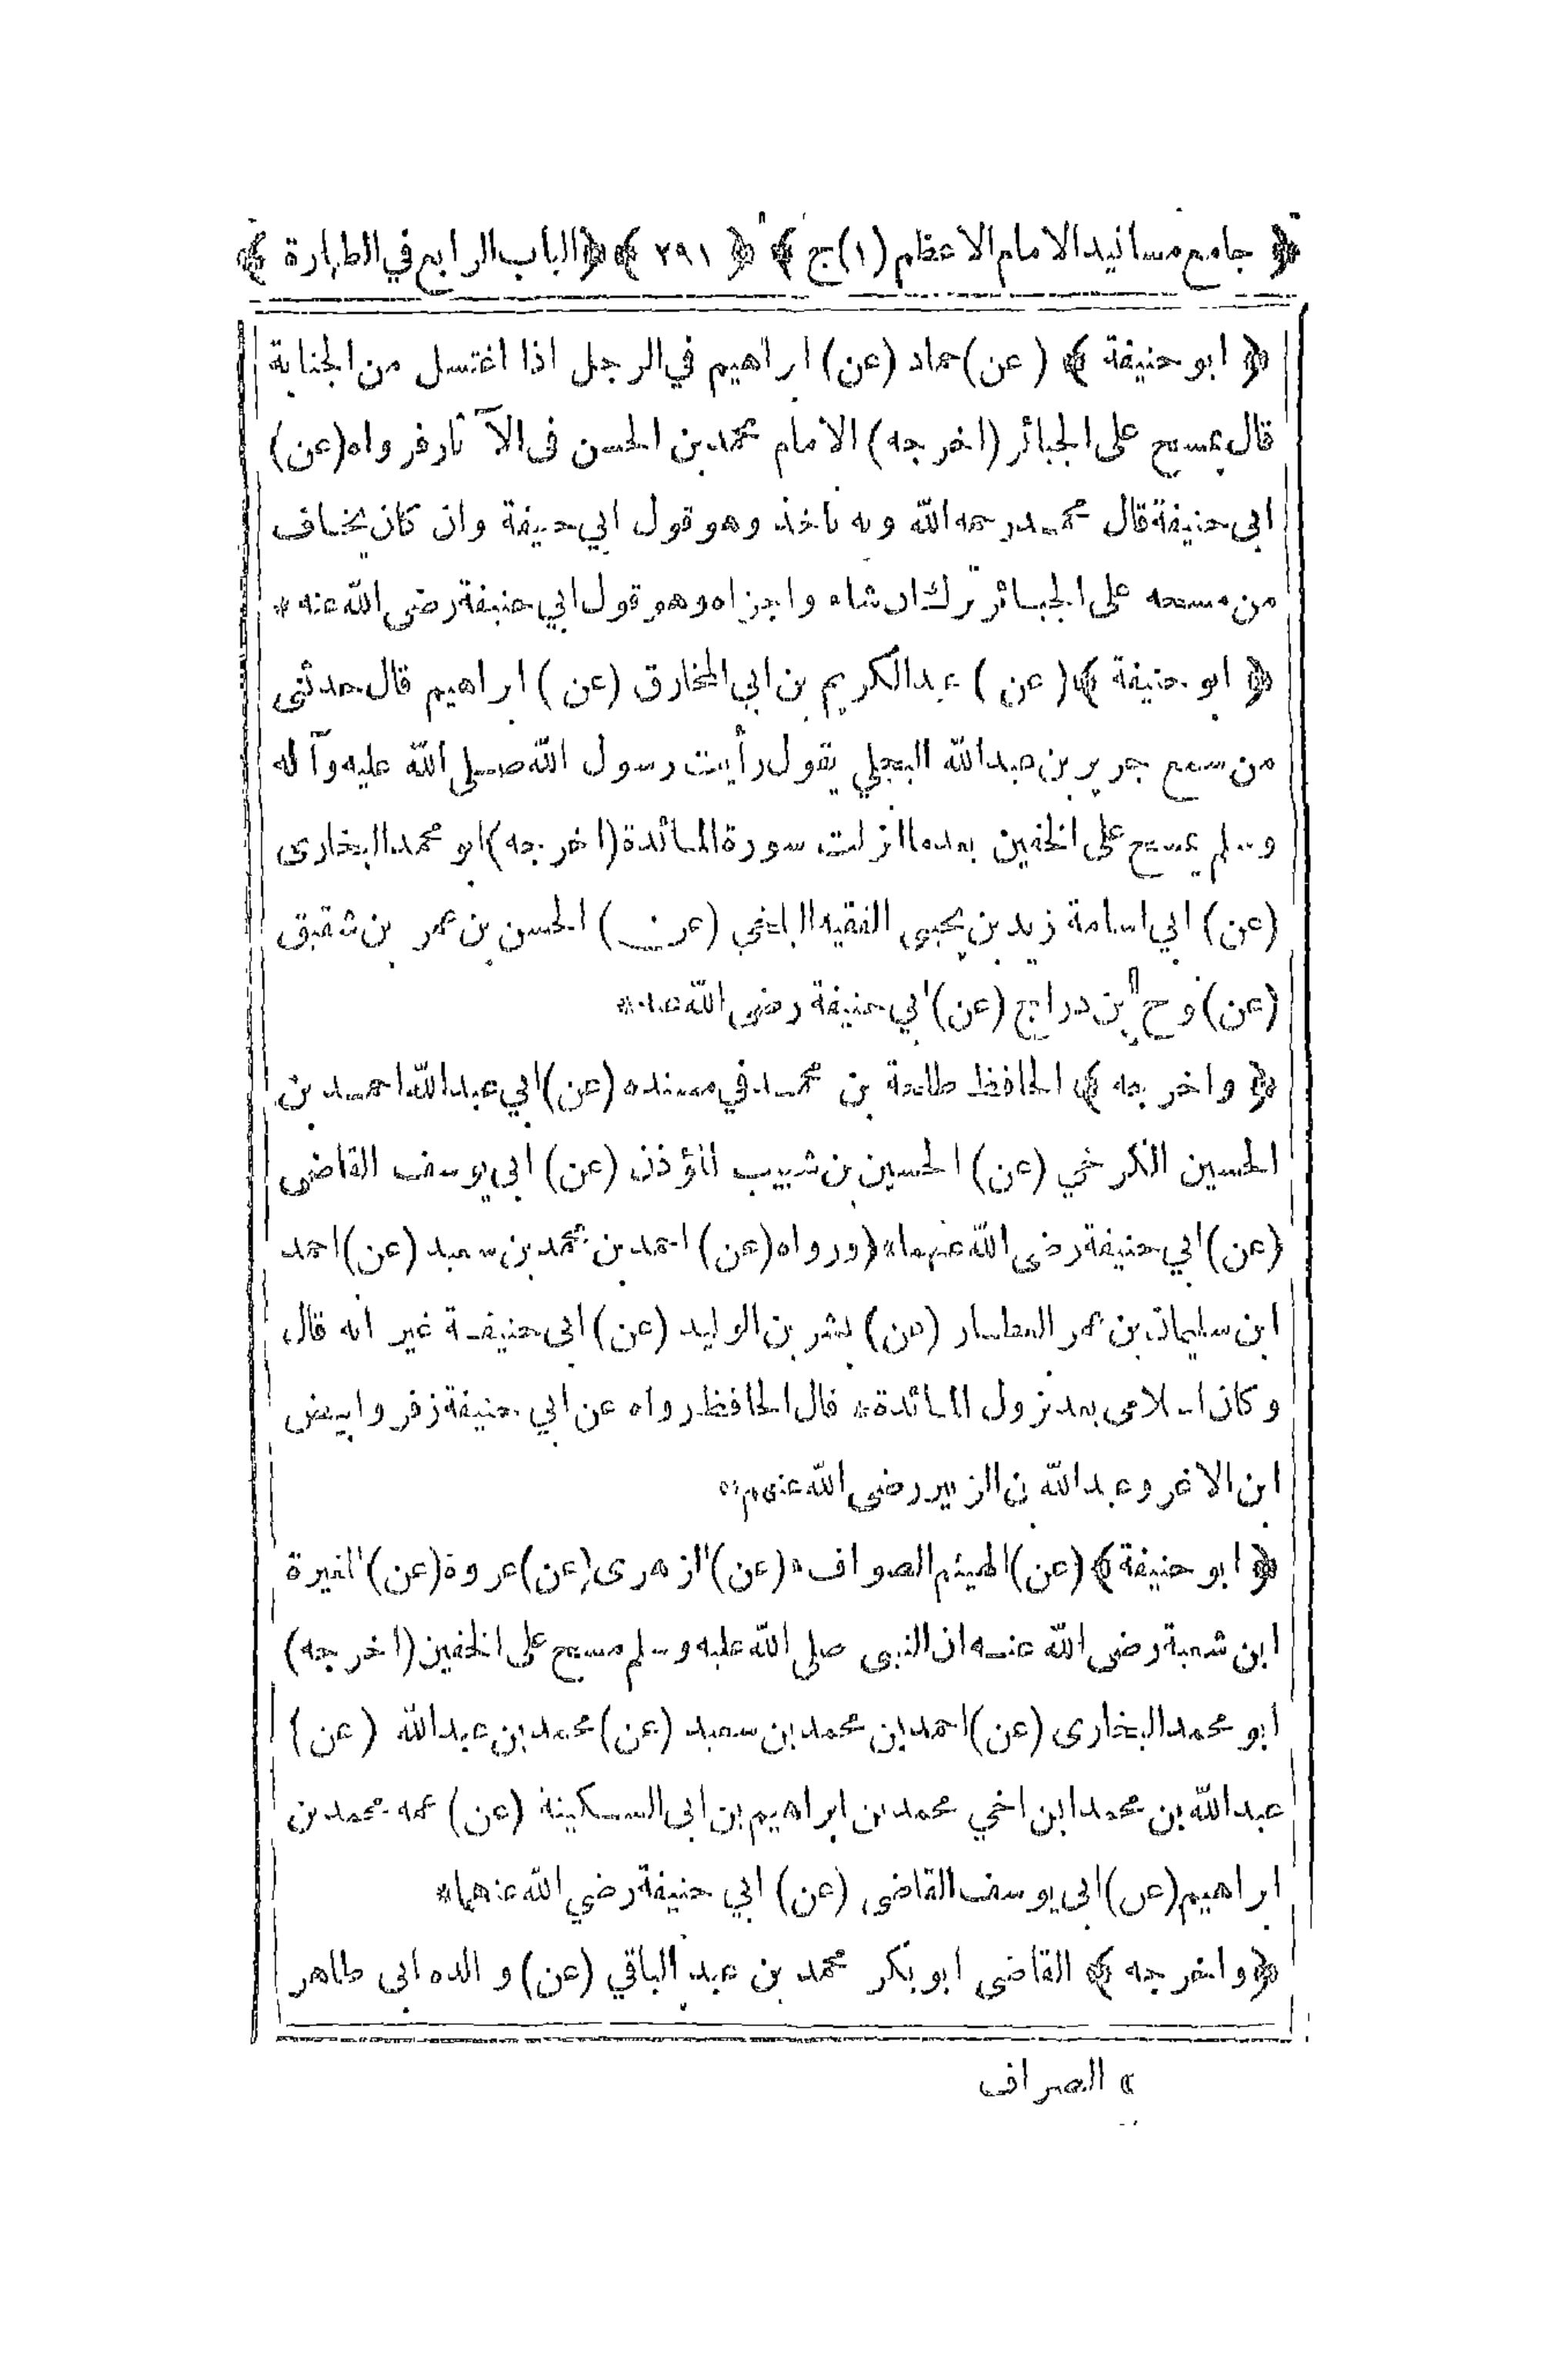 ﴿ جامع مسانيد الامام الاعظم (١) ج ﴾ ﴿ ٢٩١ ﴾ ﴿ الباب الرابع في الطهارة ﴾
﴿ ابو حنيفة ﴾ (عن) حماد (عن) ابراهيم في الرجل اذا اغتسل من الجنابة
قال يمسح على الجبائر (اخرجه) الامام محمد بن الحسن فى الآثار فرواه (عن)
ابى حنيفة قال محمد رحمه الله وبه ناخذ وهو قول ابي حنيفة وان كان يخاف
من مسحه على الجبائر ترك ان شاء واجزاه وهو قول ابي حنيفة رضى الله عنه *
﴿ ابو حنيفة ﴾ (عن) عبد الكريم بن ابي المخارق (عن) ابراهيم قال حدثنى
من سمع جرير بن عبد الله البجلي يقول رأيت رسول الله صلى الله عليه وآله
وسلم يمسح على الخفين بعد ما انزلت سورة المائدة (اخرجه) ابو محمد البخارى
(عن) ابي اسامة زيد بن يحيى الفقيه البلخي (عن) الحسن بن عمر بن شقيق
(عن) نوح بن دراج (عن) ابي حنيفة رضى الله عنه *
﴿ واخرجه ﴾ الحافظ طلحة بن محمد في مسنده (عن) ابي عبد الله احمد بن
الحسين الكرخي (عن) الحسين بن شبيب المؤذن (عن) ابى يوسف القاضى
(عن) ابي حنيفة رضى الله عنهما * (ورواه (عن) احمد بن محمد بن سعيد (عن) احمد
ابن سليمان بن عمر العطار (عن) بشر بن الوليد (عن) ابى حنيفة غير انه قال
وكان اسلامى بعد نزول المائدة * قال الحافظ رواه عن ابي حنيفة زفر وابيض
ابن الاغر وعبد الله بن الزبير رضى الله عنهم *
﴿ ابو حنيفة ﴾ (عن) الهيثم الصواف * (عن) الزهرى (عن) عروة (عن) المغيرة
ابن شعبة رضى الله عنه ان النبى صلى الله عليه وسلم مسح على الخفين (اخرجه)
ابو محمد البخارى (عن) احمد بن محمد بن سعيد (عن) محمد بن عبد الله (عن)
عبد الله بن محمد ابن اخي محمد بن ابراهيم بن ابى السكينة (عن) عمه محمد بن
ابراهيم (عن) ابى يوسف القاضى (عن) ابي حنيفة رضي الله عنهما *
﴿ واخرجه ﴾ القاضى ابو بكر محمد بن عبد الباقي (عن) والده ابى طاهر
* الصراف